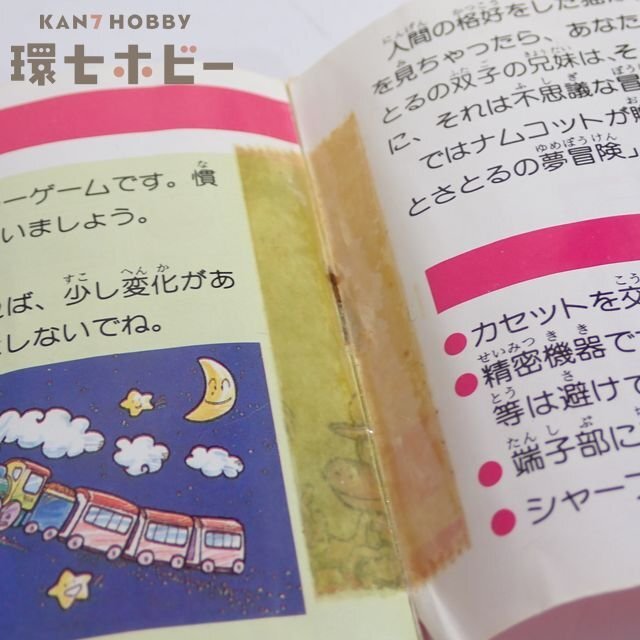 KAN7 HOBBY
環七ホビー
ーゲームです。慣
いましょう。
ば、少し変化があ
しないでね。
人間の格好をした猫
を見ちゃったら、あなた
とるの双子の兄妹は、そ
に、それは不思議な冒
ではナムコットが
とさとるの夢冒険」
カセットを交
精密機器で
等は避けて
端子部に
シャープ